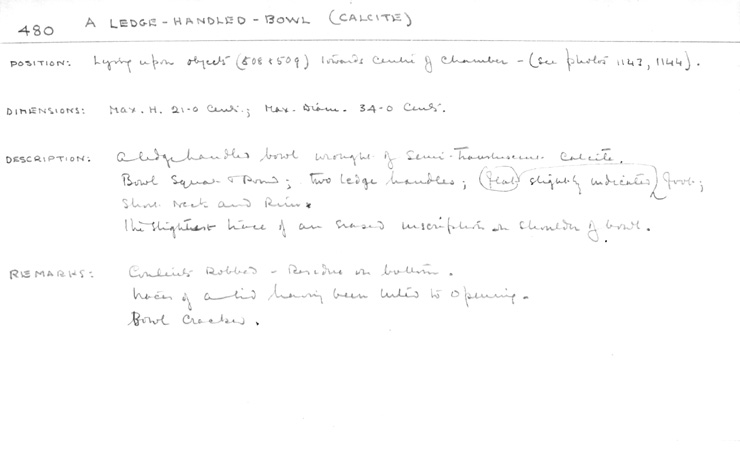 480 A LEDGE-HANDLED-BOWL (CALCITE)
POSITION: Lying upon objects (508 & 509) towards centre of chamber - (see photos 1143, 1144).
DIMENSIONS: Max. H. 21-0 Cents.; Max. Diam. 34-0 Cents.
DESCRIPTION: A ledge handled bowl wrought of Semi-Translucent Calcite.
Bowl Squat & Round; two ledge handles; (flat) slightly indicated foot;
Short Neck and Rim.
The slightest trace of an erased inscription on shoulder of bowl.
REMARKS: Contents Robbed - Residue on bottom.
traces of a lid having been luted to opening.
Bowl cracked.